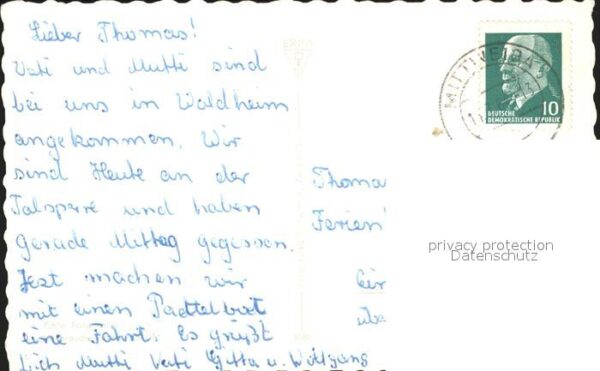 Lieber Thomas!
Vati und Mutti sind
bei uns in Waldheim
angekommen. Wir
sind Heute an der
Talsperre und haben
gerade Mittag gegessen.
Jezt machen wir
mit einen Paddelboot
eine Fahrt. Es grüßt
Dich Mutti Vati Gitta u. Wolfgang
Thoma
Ferien
MITTWEIDA
10
DEUTSCHE
DEMOKRATISCHE REPUBLIK
privacy protection
Datenschutz